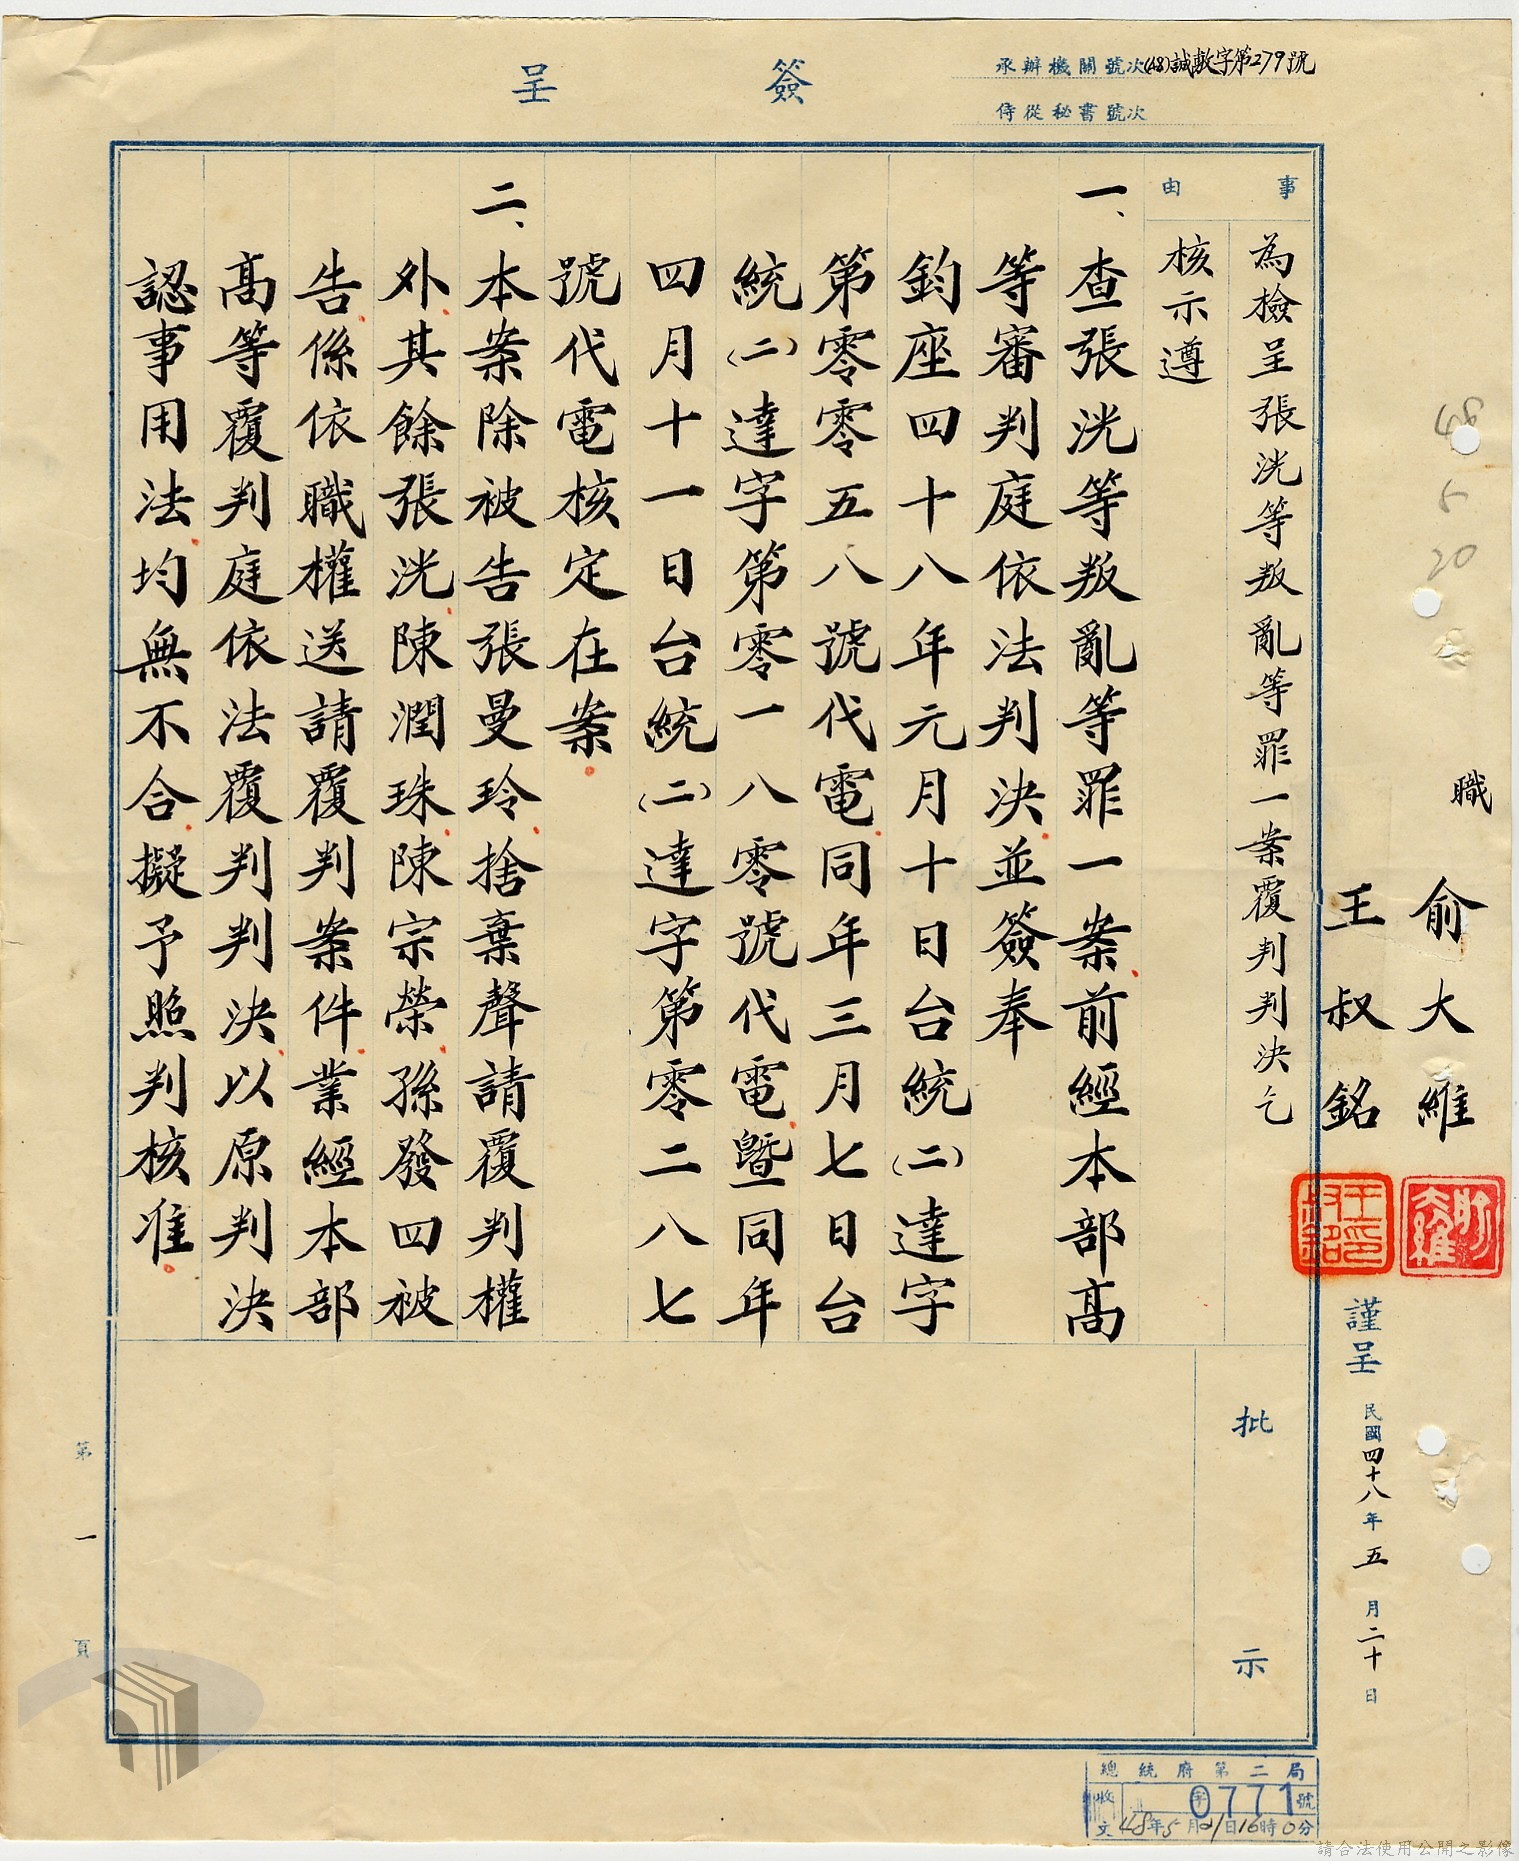 簽呈
承辦機關號次(48)誠敷字第279號
侍從秘書號次
事由
為檢呈張洸等叛亂等罪一案覆判判決乞
核示遵
一、查張洸等叛亂等罪一案前經本部高
等審判庭依法判決並簽奉
鈞座四十八年元月十日台統(二)達字
第零零五八號代電同年三月七日台
統(二)達字第零一八零號代電暨同年
四月十一日台統(二)達字第零二八七
號代電核定在案
二、本案除被告張曼玲捨棄聲請覆判權
外其餘張洸陳潤珠陳宗榮孫發四被
告係依職權送請覆判案件業經本部
高等覆判庭依法覆判判決以原判決
認事用法均無不合擬予照判核准
批示
48
5
20
職
俞大維
王叔銘
俞大維
王叔銘印
謹呈
民國四十八年五月二十日
第一頁
總統府第二局
收文 字0771號
48年5月21日16時0分
請合法使用公開之影像